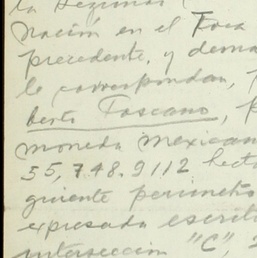 la Regional
nación en el Foca
precedente, y dema
le correspondan,
berto Toscano,
moneda mexican
55,748.9112 hect
guiente perimetro
expresada escrit
intersección "C",